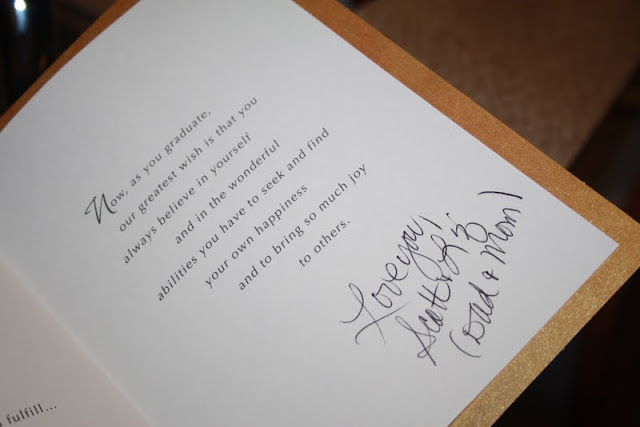 fulfill...
Now, as you graduate,
our greatest wish is that you
always believe in yourself
and in the wonderful
abilities you have to seek and find
your own happiness
and to bring so much joy
to others.
Love you,
Scott & Liz
(Dad & Mom)